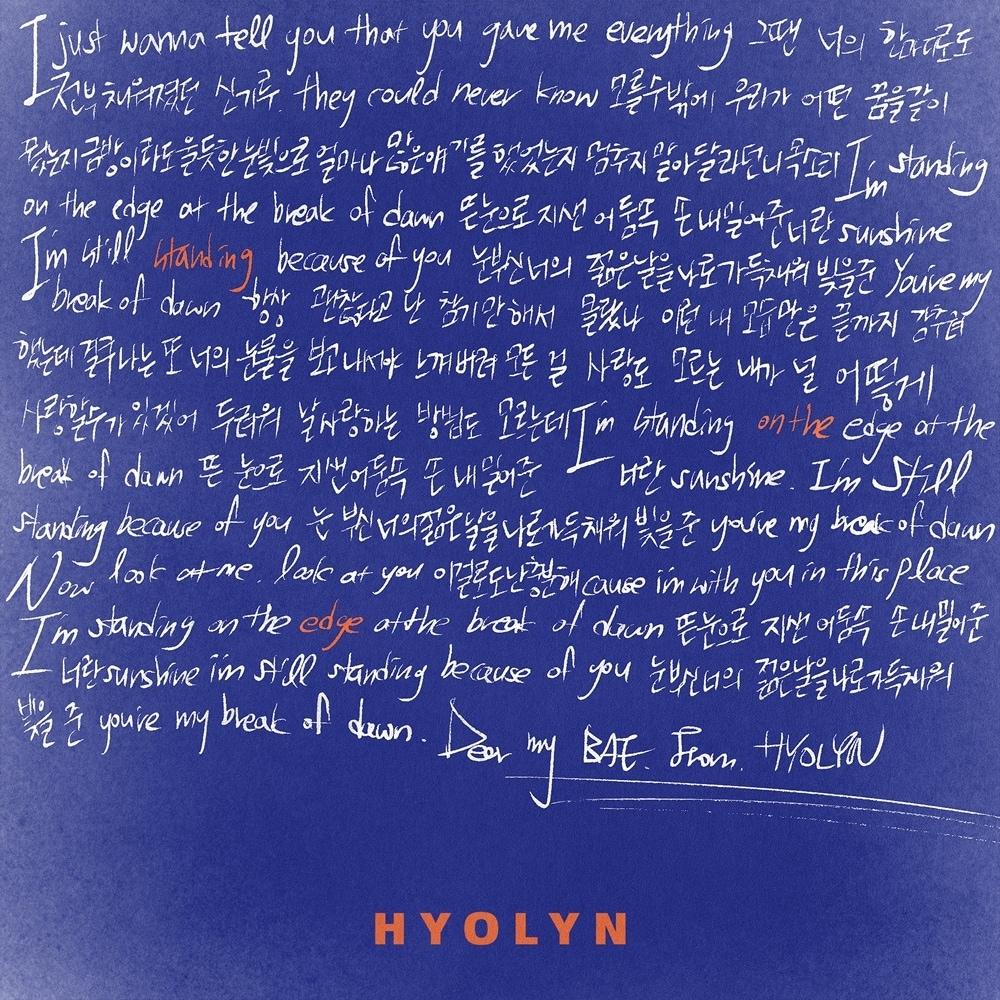 I just wanna tell you that you gave me everything 그땐 너의 한마디로도
전부 채워졌던 신기루. they could never know 모를수밖에 우리가 어떤 꿈을같이
꿨는지 금방이라도 울듯한 눈빛으로 얼마나 많은얘기를 했었는지 멈추지 말아달라던 니 목소리 I'm standing
on the edge at the break of dawn 뜬눈으로 지샌 어둠속 손 내밀어준 너란 sunshine
I'm still standing because of you 눈부신 너의 젊은날을 나로 가득채워 빛을준 You're my
break of dawn 항상 괜찮다고 난 참기만해서 몰랐나 이런 내 모습만은 끝까지 감추려
했는데 결국 나는 또 너의 눈물을 보고 내서야 느껴버려 모든 걸 사랑도 모르는 내가 널 어떻게
사랑할수가 있겠어 두려워 날 사랑하는 방법도 모르는데 I'm standing on the edge at the
break of dawn 뜬 눈으로 지샌 어둠속 손 내밀어준 너란 sunshine. I'm still
standing because of you 눈 부신 너의 젊은날을 나로가득채워 빛을 준 you're my break of dawn
Now look at me. look at you 이걸로도 난 충분해 cause i'm with you in this place
I'm standing on the edge at the break of dawn 뜬눈으로 지샌 어둠속 손 내밀어준
너란 sunshine i'm still standing because of you 눈부신 너의 젊은날을나로가득채워
빛을 준 you're my break of dawn. Dear my BAE. From. HYOLYN
HYOLYN